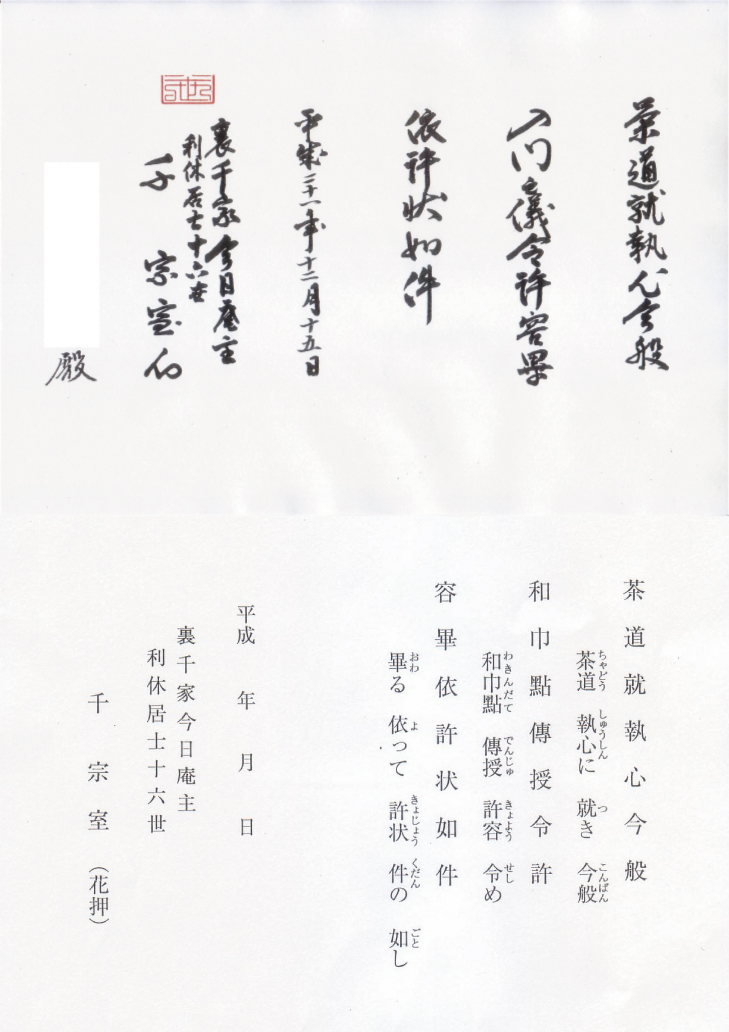 茶道就執心今般
入門之儀令許容畢
依許状如件
平成二十一年十二月十五日
裏千家今日庵主
利休居士十六世
千宗室
殿
茶道就執心今般
茶道ちゃどう 執心しゅうしんに 就つき 今般こんぱん
和巾點傳授令許
和巾點わきんだて 傳授でんじゅ 許容きょよう 令せしめ
容畢依許状如件
畢おわる 依よって 許状きょじょう 件くだんの 如ごとし
平成 年 月 日
裏千家今日庵主
利休居士十六世
千宗室(花押)